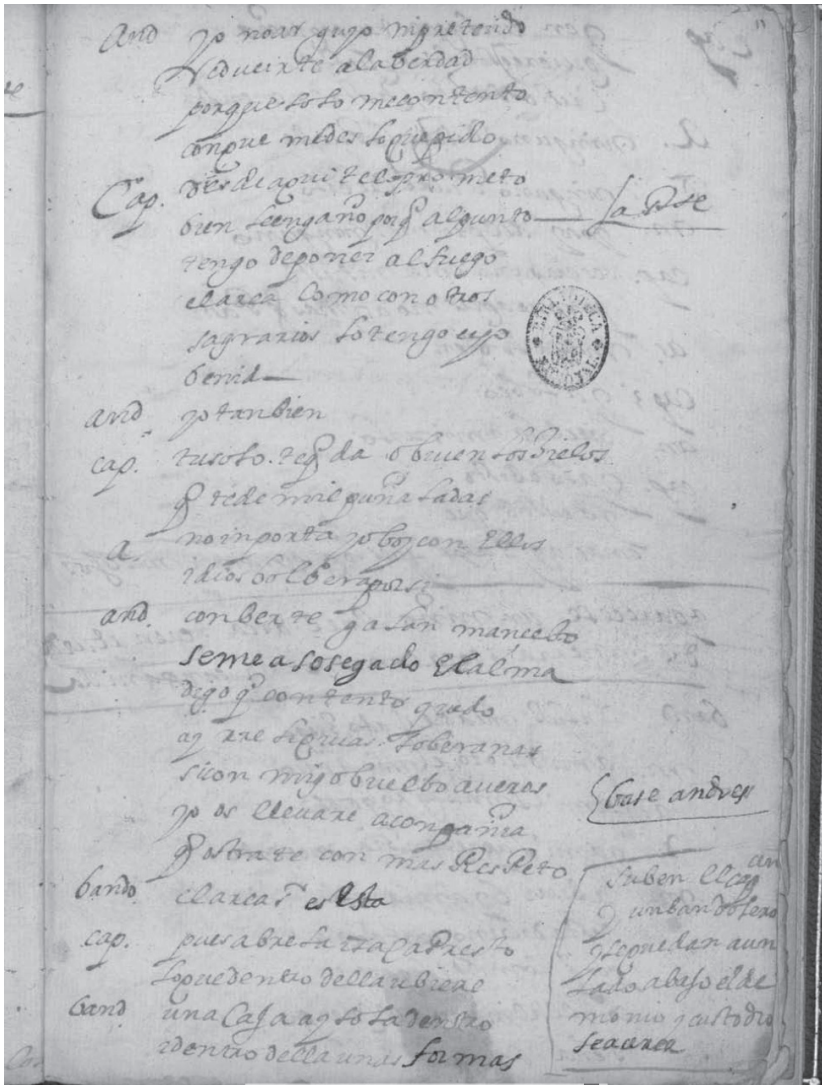 And yo no arguyo ni pretendo
Reducirte a la berdad
porque solo me contento
con que me des lo que pido
Cap. desde aqui te lo prometo
bien le engaño porq algunto
la Rse
tengo de poner al fuego
el arca como con otros
sagrarios lo tengo
BIBLIOTECA NACIONAL
benid
and yo tanbien
cap. tu solo te queda
q te de mil puñaladas
A. no inporta yo boy con Ellos
i dios bolbera por si
and. con berte galan mancebo
se me a sosegado El alma
digo q contento quedo
aq rre liquias soberanas
si con migo buelbo a veros
yo os llevare a conpañia
q os trate con mas Respeto
base andres
bando el arca es Esta
cap. pues abre la rraca presto
lo que dentro della ubiere
band una Caja ay sola dentro
i dentro della unas formas
suben el cap an
y un bandolero
y se quedan a un
lado abajo el de
monio y custodio